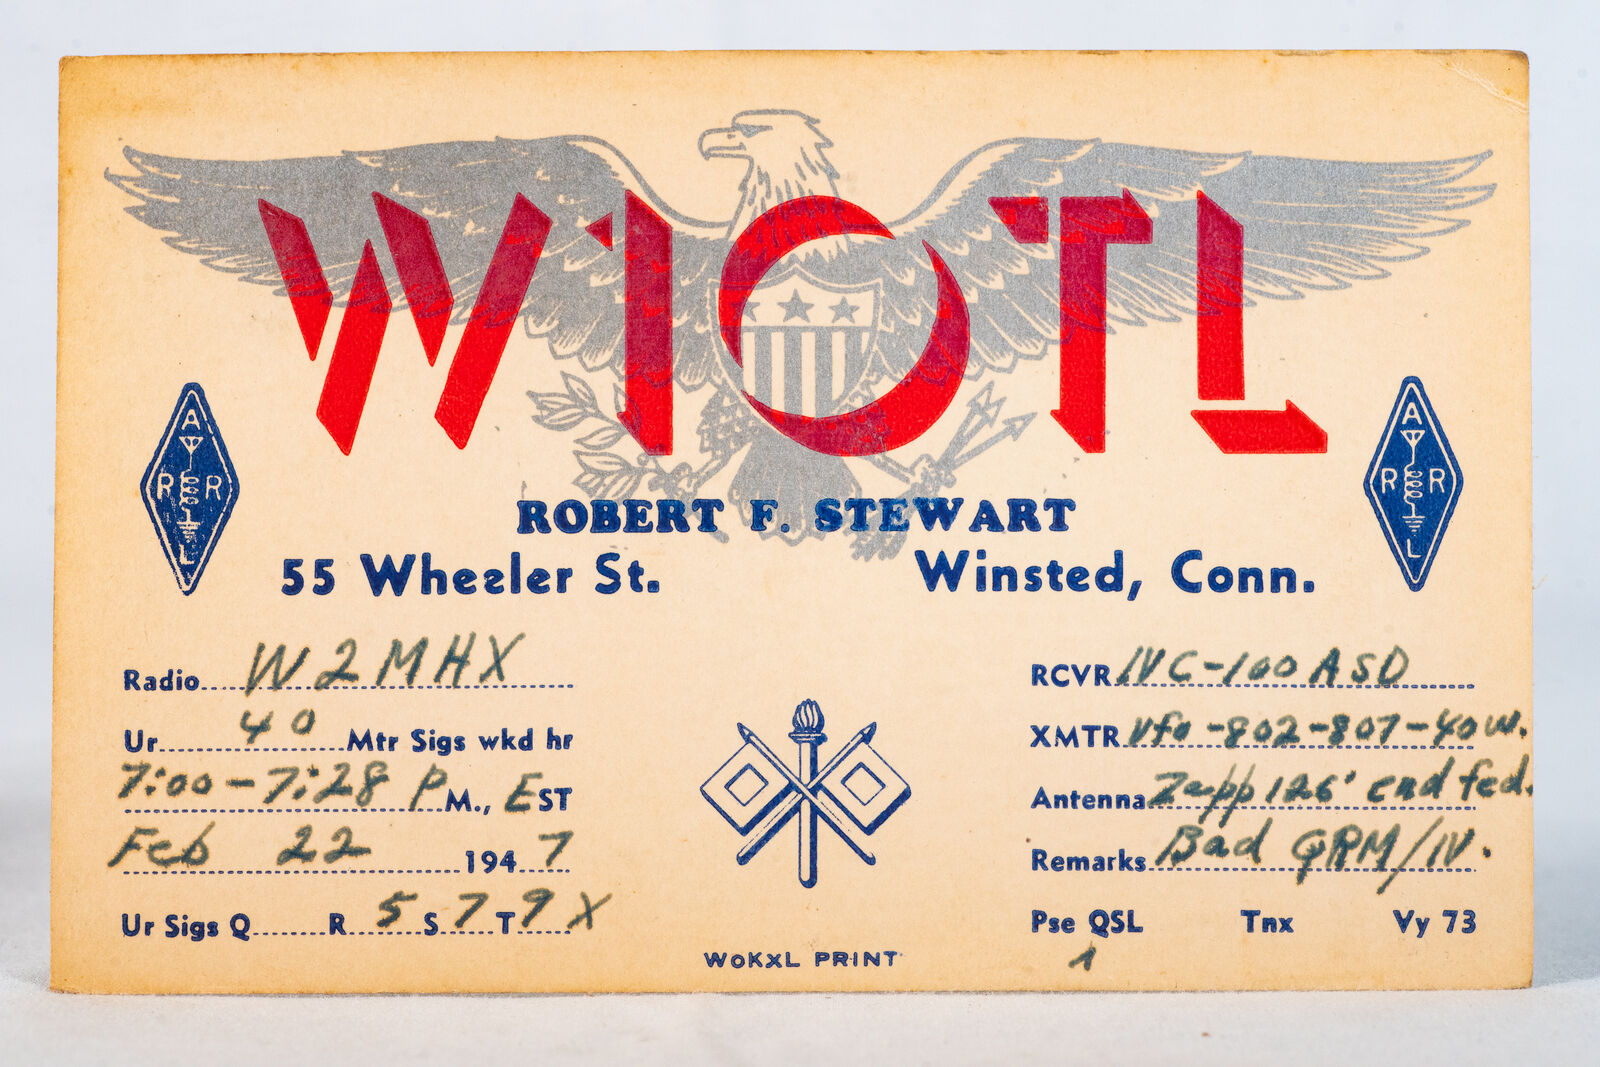 W1OTL
A
R R
L
A
R R
L
ROBERT F. STEWART
55 Wheeler St. Winsted, Conn.
Radio W2MHX
Ur 40 Mtr Sigs wkd hr
7:00-7:28 P M., EST
Feb 22 1947
Ur Sigs Q R 5 S 7 T 9 X
RCVR HVC-100 ASD
XMTR Vfo-802-807-40w.
Antenna Zepp 126' end fed.
Remarks Bad QRM/N.
Pse QSL Tnx Vy 73
WOKXL PRINT